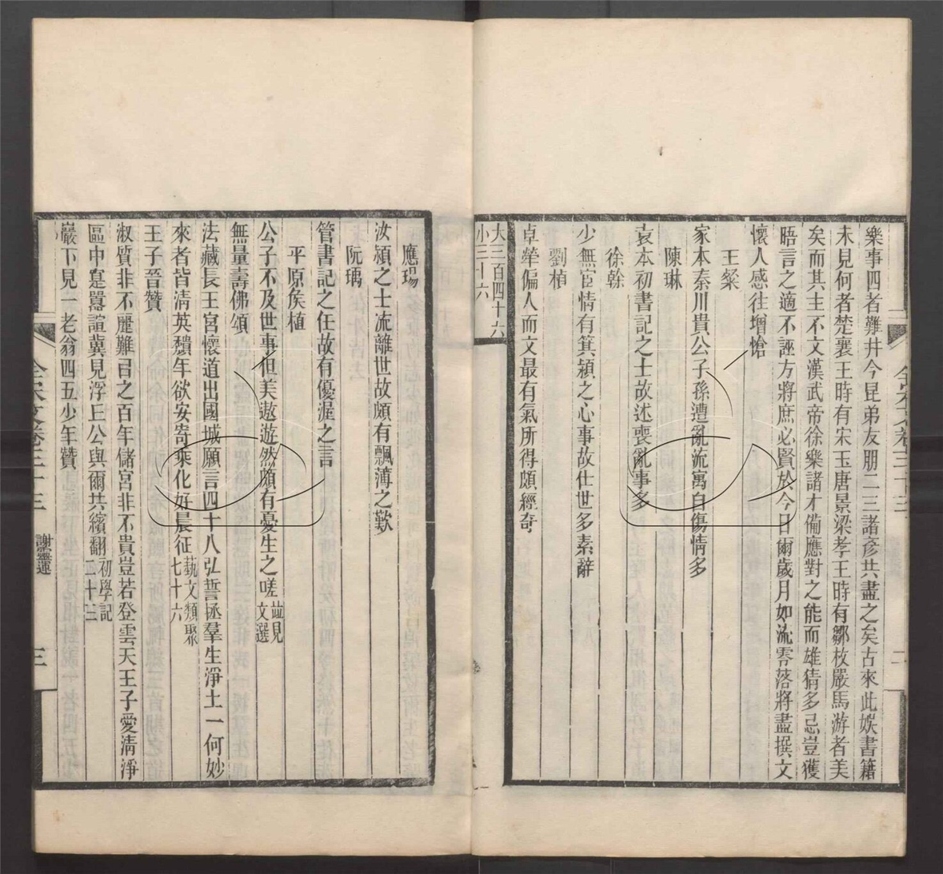 樂事四者難幷今昆弟友朋二三諸彥共盡之矣古來此娛書籍
未見何者楚襄王時有宋玉唐景梁孝王時有鄒枚嚴馬游者美
矣而其主不文漢武帝徐樂諸才備應對之能而雄猜多忌豈獲
晤言之適不誣方將庶必賢於今日爾歲月如流零落將盡撰文
懷人感往增愴
王粲
家本秦川貴公子孫遭亂流寓自傷情多
陳琳
袁本初書記之士故述喪亂事多
徐榦
少無宦情有箕潁之心事故仕世多素辭
劉楨
卓犖偏人而文最有氣所得頗經奇
大三百四十六
小三十六
全宋文卷三十三
二
應瑒
汝潁之士流離世故頗有飄薄之歎
阮瑀
管書記之任故有優渥之言
平原侯植
公子不及世事但美遨遊然頗有憂生之嗟 竝見文選
無量壽佛頌
法藏長王宮懷道出國城願言四十八弘誓拯羣生淨土一何妙
來者皆清英頹年欲安寄乘化好晨征 藝文類聚七十六
王子晉贊
淑質非不麗難之百年儲宮非不貴豈若登雲天王子愛清淨
區中寔囂諠冀見浮丘公與爾共繽翻 初學記二十三
巖下見一老翁四五少年贊
全宋文卷三十三
謝靈運
三